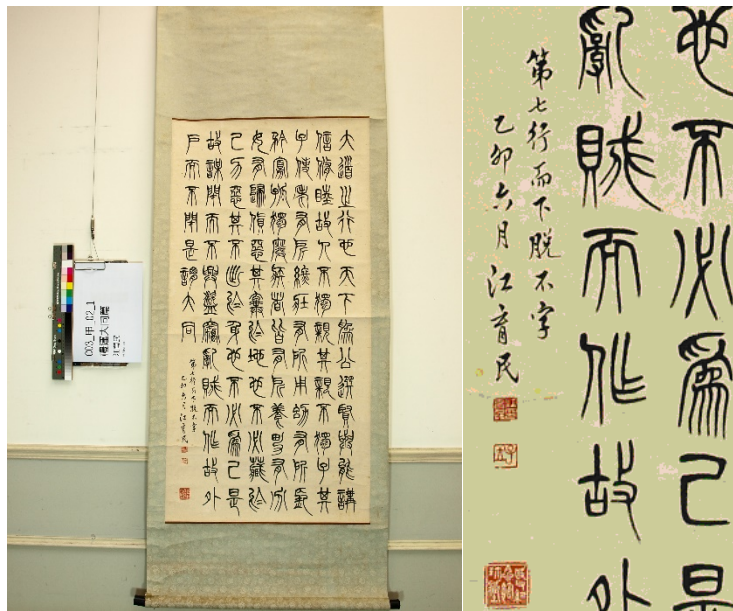 大道之行也天下為公選賢與能講
信修睦故人不獨親其親不獨子其
子使老有所終壯有所用幼有所長
矜寡孤獨廢疾者皆有所養男有分
女有歸貨惡其棄於地也不必藏於
己力惡其不出於身也不必為己是
故謀閉而不興盜竊亂賊而作故外
戶而不閉是謂大同
第七行而下脫不字
乙卯六月江育民
C03_甲_02_1
禮運大同篇
江育民
也不必為己是
亂賊而作故外
第七行而下脫不字
乙卯六月江育民